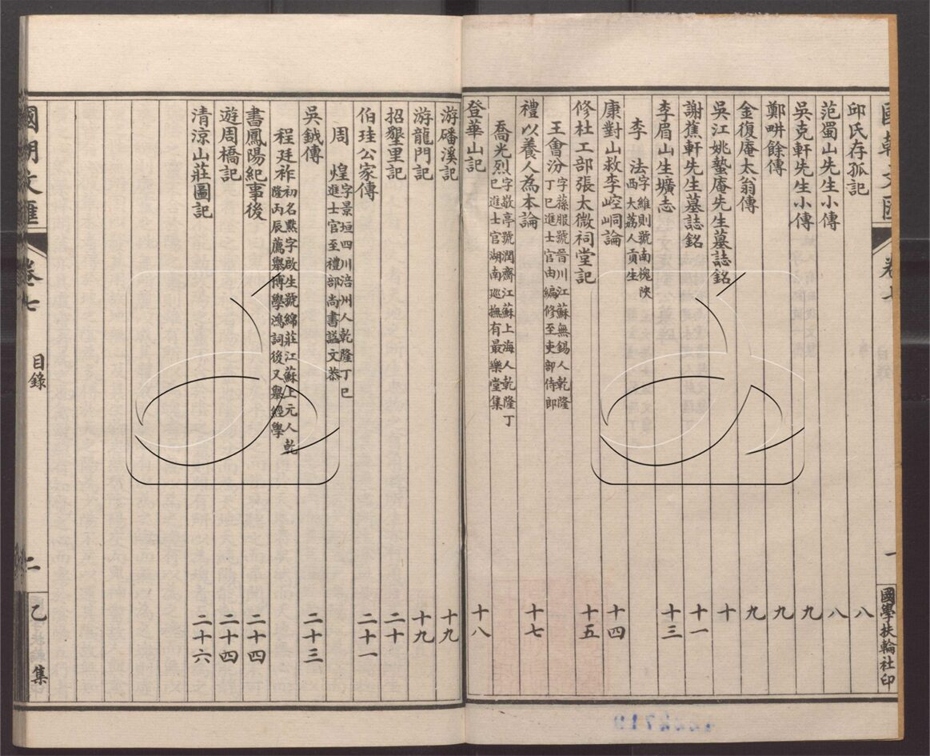 國朝文匯
卷七
一
國學扶輪社印
邱氏存孤記 八
范蜀山先生小傳 八
吳克軒先生小傳 九
鄭畊餘傳 九
金復庵太翁傳 九
吳江姚蟄庵先生墓誌銘 十
謝蕉軒先生墓誌銘 十一
李眉山生壙志 十三
李 法 字維則號南槐陝西大荔人貢生
康對山救李崆峒論 十四
修杜工部張太微祠堂記 十五
王會汾 字蓀服號晉川江蘇無錫人乾隆丁巳進士官由編修至吏部侍郎
禮以養人為本論 十七
喬光烈 字敬亭號潤齋江蘇上海人乾隆丁巳進士官湖南巡撫有最樂堂集
登華山記 十八
游磻溪記 十九
游龍門記 十九
招墾里記 二十
伯珪公家傳 二十一
周 煌 字景垣四川涪州人乾隆丁巳進士官至禮部尚書諡文恭
吳鉞傳 二十三
程廷祚 初名默字啟生號綿莊江蘇上元人乾隆丙辰薦舉博學鴻詞後又舉經學
書鳳陽紀事後 二十四
遊周橋記 二十四
清涼山莊圖記 二十六
國朝文匯
卷七
目錄
二
乙
集